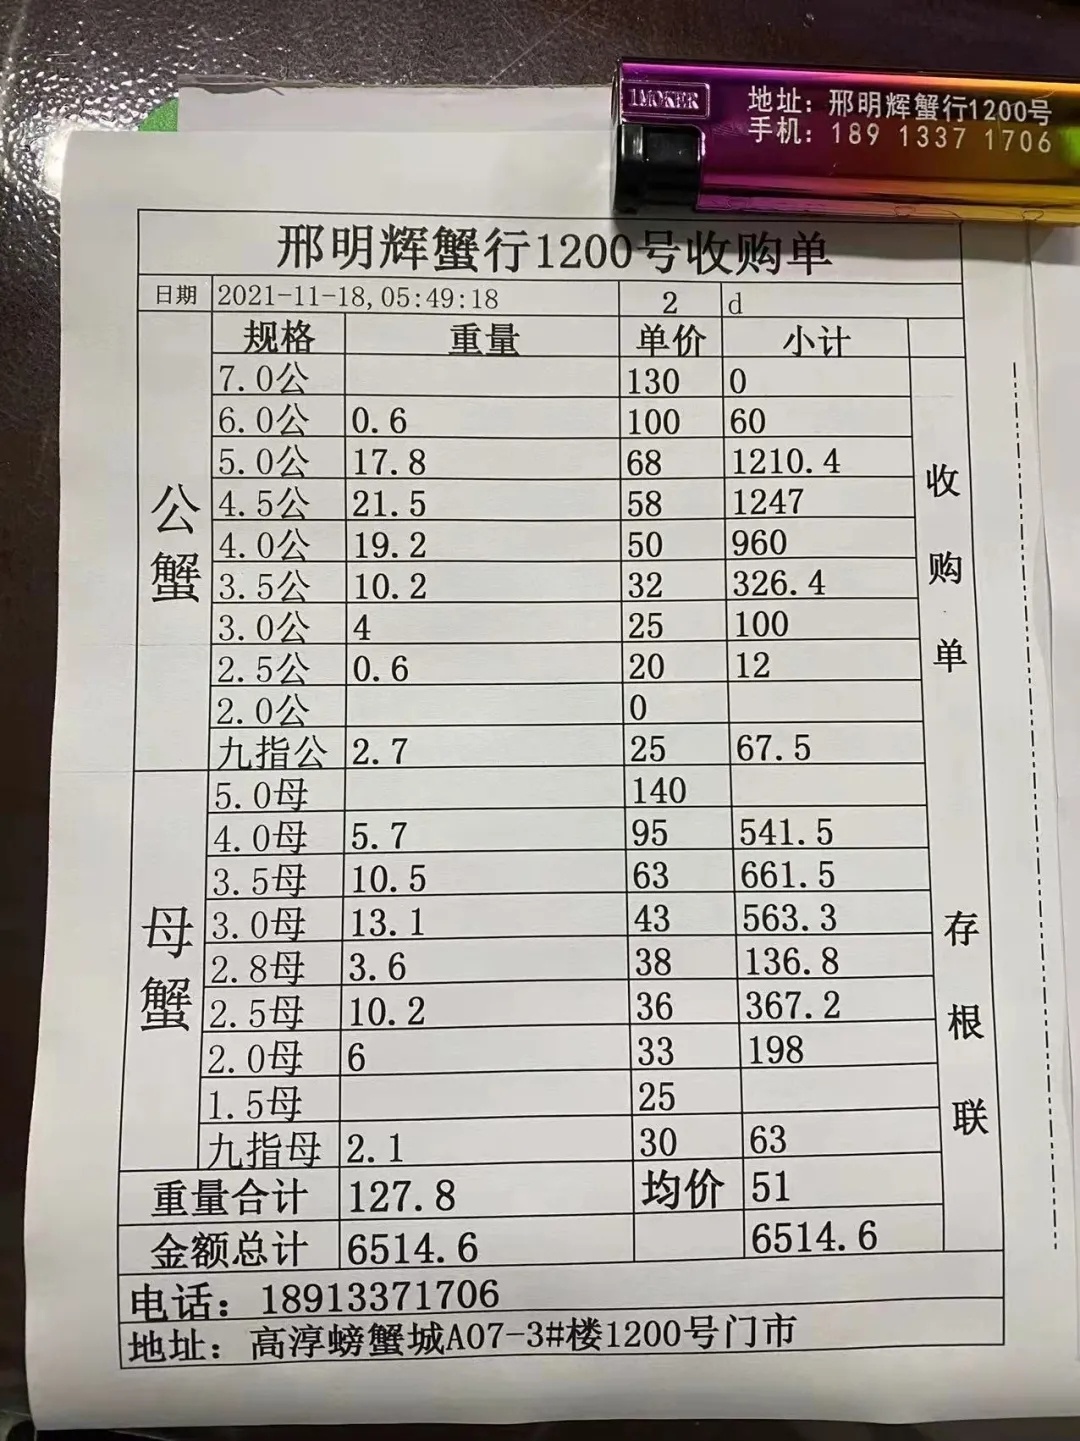 1MOKER
地址：邢明辉蟹行1200号
手机：189 1337 1706
邢明辉蟹行1200号收购单
日期 2021-11-18,05:49:18 2 d
规格 重量 单价 小计
公蟹
7.0公 130 0
6.0公 0.6 100 60
5.0公 17.8 68 1210.4
4.5公 21.5 58 1247
4.0公 19.2 50 960
3.5公 10.2 32 326.4
3.0公 4 25 100
2.5公 0.6 20 12
2.0公 0
九指公 2.7 25 67.5
母蟹
5.0母 140
4.0母 5.7 95 541.5
3.5母 10.5 63 661.5
3.0母 13.1 43 563.3
2.8母 3.6 38 136.8
2.5母 10.2 36 367.2
2.0母 6 33 198
1.5母 25
九指母 2.1 30 63
重量合计 127.8 均价 51
金额总计 6514.6 6514.6
收购单 存根联
电话：18913371706
地址：高淳螃蟹城A07-3#楼1200号门市